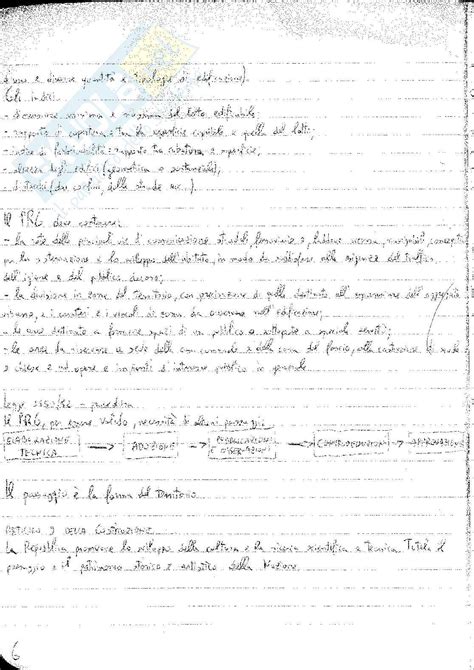 d'uso e diverse quantità e tipologie di edificazione).
Gli indici:
- dimensione minima e massima del lotto edificabile,
- rapporto di copertura = tra la superficie coperta e quella del lotto;
- indice di fabbricabilità = rapporto tra cubatura e superficie,
- altezza degli edifici (geometrica o sostenibile),
- distacchi (dai confini, dalle strade ecc...).
Il PRG deve contenere:
- la rete delle principali vie di comunicazione stradali, ferroviarie e, laddove occorra, navigabili, concepita
per la sistemazione e lo sviluppo dell'abitato, in modo da soddisfare alle esigenze del traffico,
dell'igiene e del pubblico decoro;
- la divisione in zone del territorio, con precisazione di quelle destinate all'espansione dell'aggregato
urbano, e i caratteri e i vincoli di zona da osservare nell'edificazione;
- le aree destinate a formare spazi di uso pubblico o sottoposte a speciali servitù;
- le aree da riservare a sede della casa comunale e della casa del fascio, alla costruzione di scuole
e chiese e ad opere e impianti d'interesse pubblico in generale
Legge 1150/42 - procedura
Il PRG, per essere valido, necessità di alcuni passaggi
ELABORAZIONE TECNICA → ADOZIONE → PUBBLICAZIONE E OSSERVAZIONI → CONTRODEDUZIONI → APPROVAZIONE
Il paesaggio è la forma del territorio
ARTICOLO 9 DELLA COSTITUZIONE
La Repubblica promuove lo sviluppo della cultura e la ricerca scientifica e tecnica. Tutela il
paesaggio e il patrimonio storico e artistico della Nazione.
6